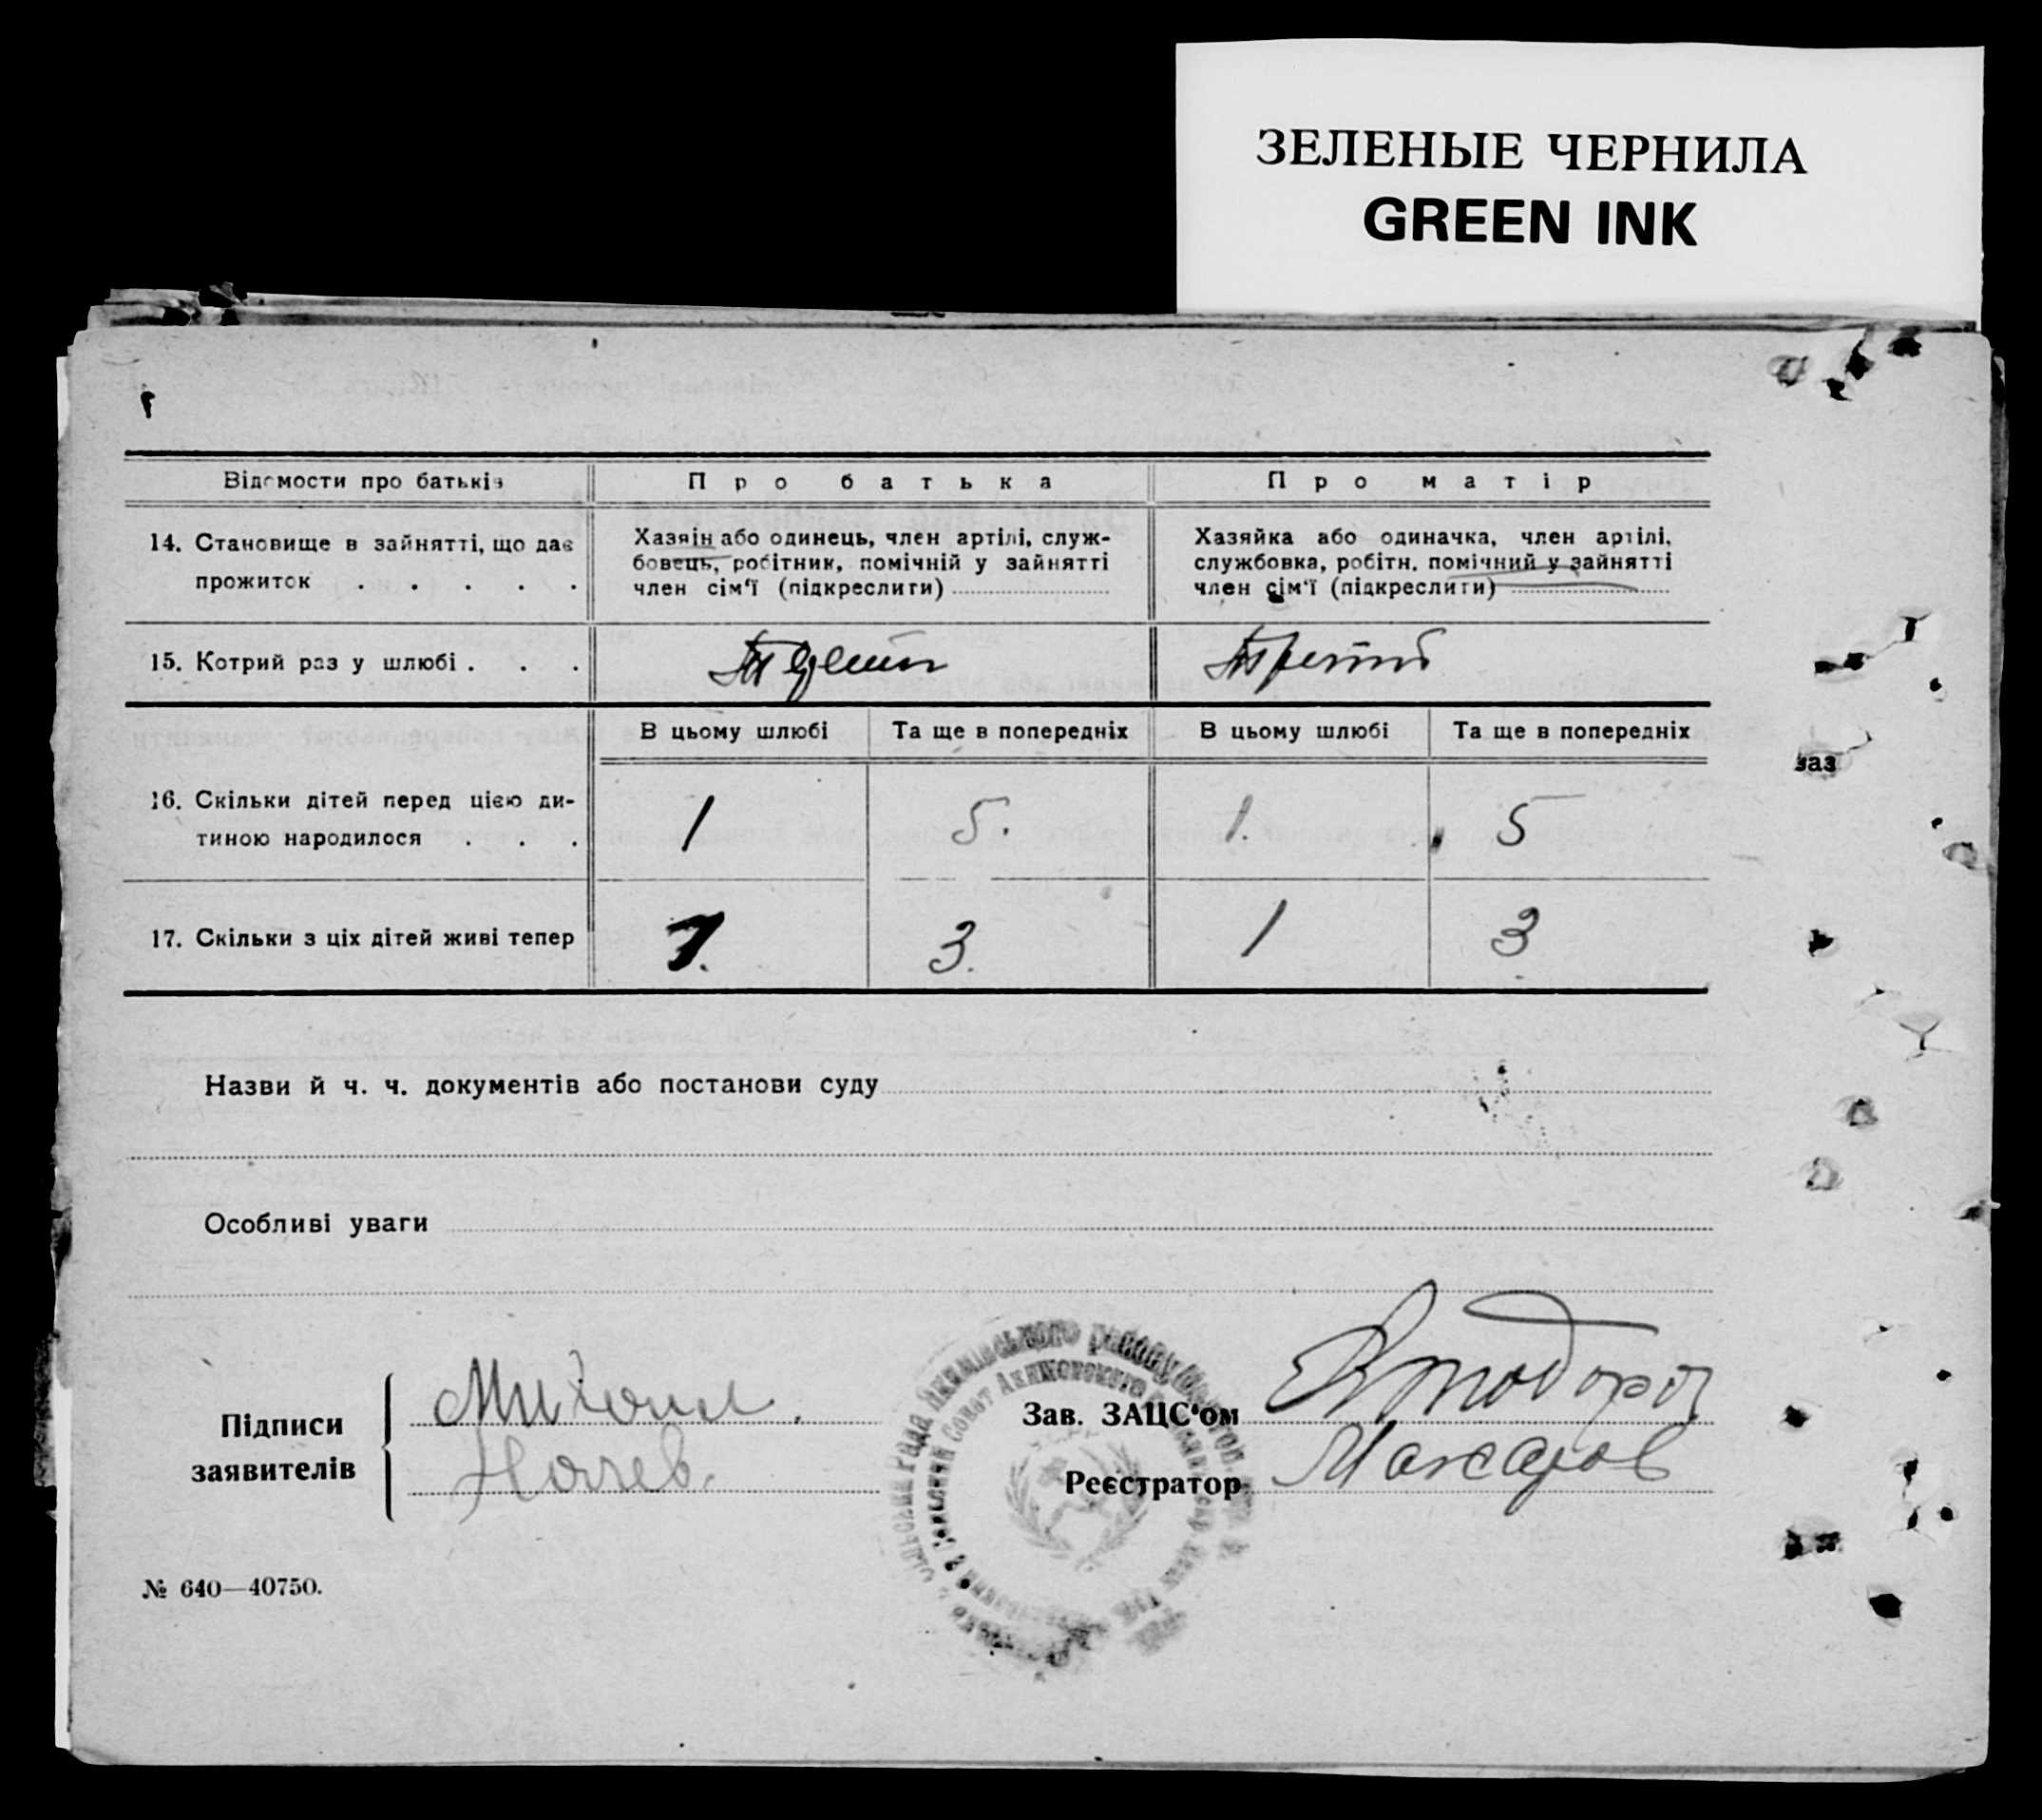 ЗЕЛЕНЫЕ ЧЕРНИЛА
GREEN INK
Відомости про батьків
Про батька
Про матір
14. Становище в зайнятті, що дає
прожиток . . . . .
Хазяїн або одинець, член артілі, служ-
бовець, робітник, помічній у зайнятті
член сім'ї (підкреслити)
Хазяйка або одиначка, член артілі,
службовка, робітн. помічний у зайнятті
член сім'ї (підкреслити)
15. Котрий раз у шлюбі . . .
В цьому шлюбі
Та ще в попередніх
В цьому шлюбі
Та ще в попередніх
16. Скільки дітей перед цією ди-
тиною народилося . . .
1
5.
1.
5
17. Скільки з ціх дітей живі тепер
1.
3.
1
3
Назви й ч. ч. документів або постанови суду
Особливі уваги
Підписи
заявителів
Михаил
Зав. ЗАЦС'ом
Реєстратор
Макаров
Акимівського району
Совет Акимовского
№ 640—40750.